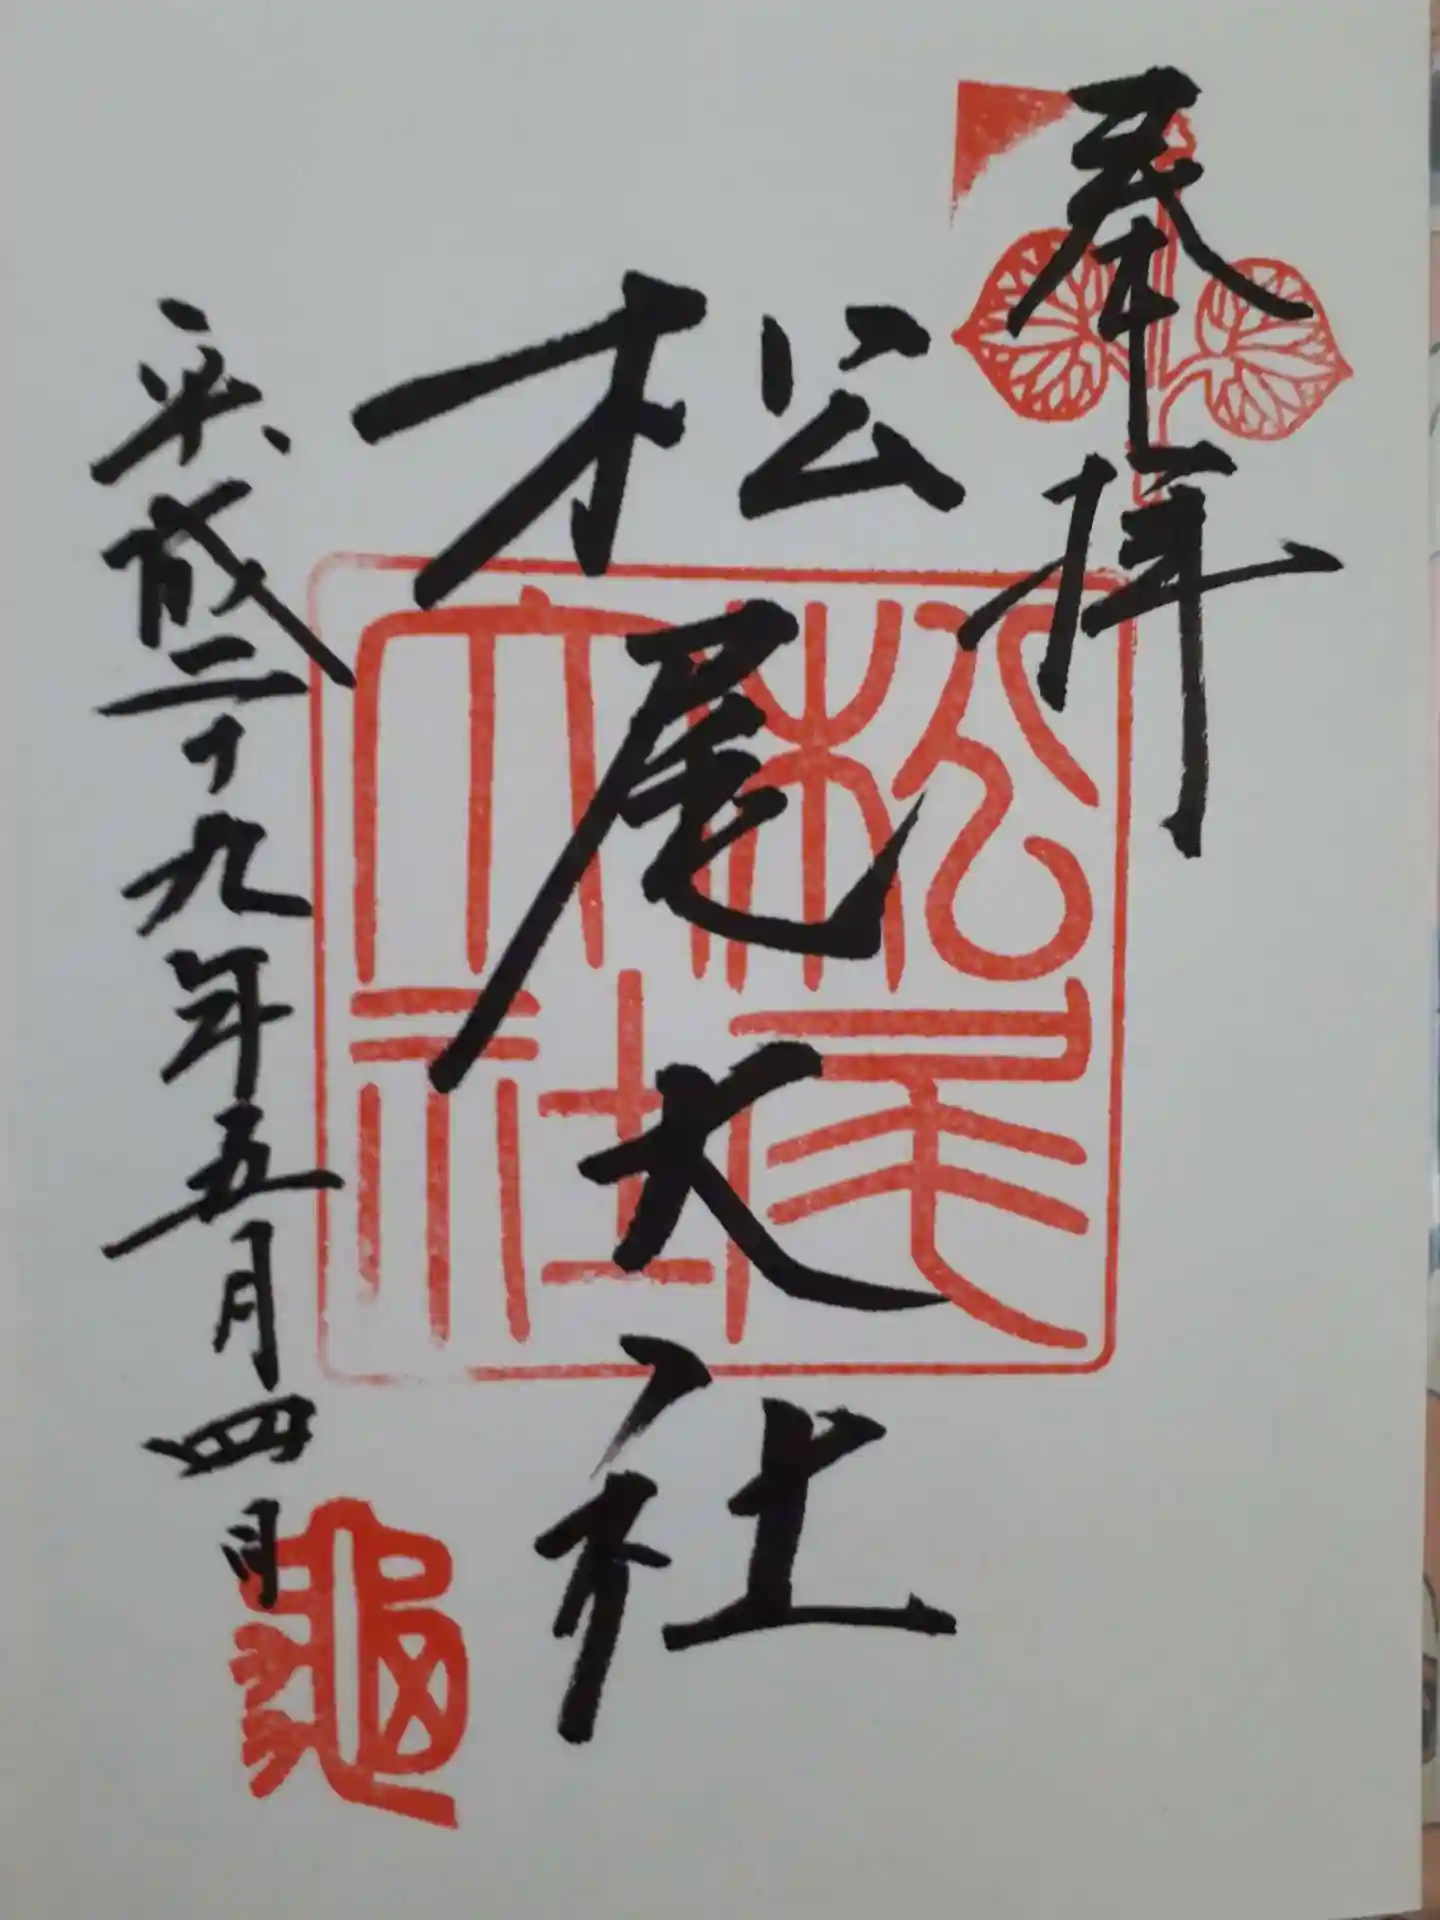 奉拝
松尾大社
松尾大社
平成二十九年五月四日
龜